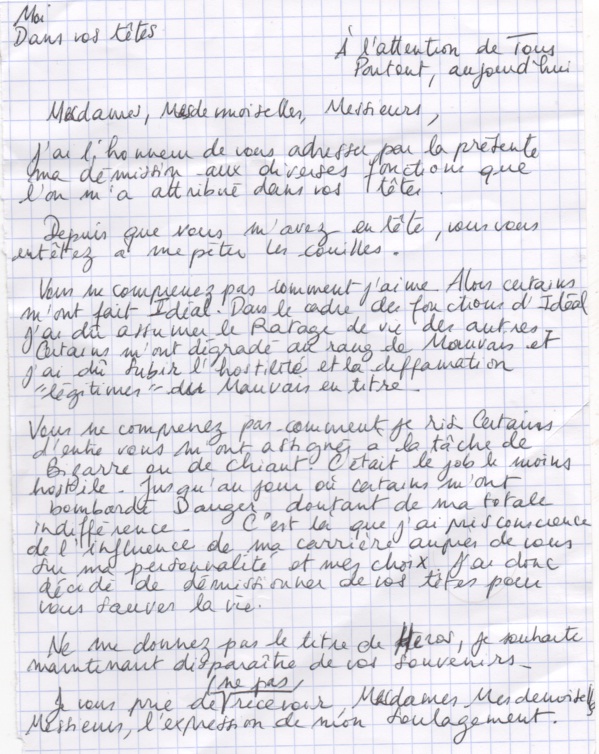 Moi
Dans vos têtes
À l'attention de Tous
Partout, aujourd'hui
Mesdames, Mesdemoiselles, Messieurs,
J'ai l'honneur de vous adresser par la présente
ma démission aux diverses fonctions que
l'on m'a attribué dans vos têtes.
Depuis que vous m'avez en tête, vous vous
entêtez à me péter les couilles.
Vous ne comprenez pas comment j'aime. Alors certains
m'ont fait Idéal. Dans le cadre des fonctions d'Idéal
j'ai dû assumer le Ratage de vie des autres.
Certains m'ont dégradé au rang de Mauvais et
j'ai dû subir l'hostilité et la diffamation
"légitimes" du Mauvais en titre.
Vous ne comprenez pas comment je ris. Certains
d'entre vous m'ont assigné a la tâche de
Bizarre ou de chiant. C'était le job le moins
hostile. Jusqu'au jour où certains m'ont
bombardé Danger, doutant de ma totale
indifférence. C'est là que j'ai pris conscience
de l'influence de ma carrière auprès de vous
sur ma personnalité et mes choix. J'ai donc
décidé de démissionner de vos têtes pour
vous sauver la vie.
Ne me donnez pas le titre de Héros, je souhaite
maintenant disparaître de vos souvenirs.
(ne pas)
Je vous prie de recevoir, Mesdames Mesdemoiselles
Messieurs, l'expression de mon soulagement.